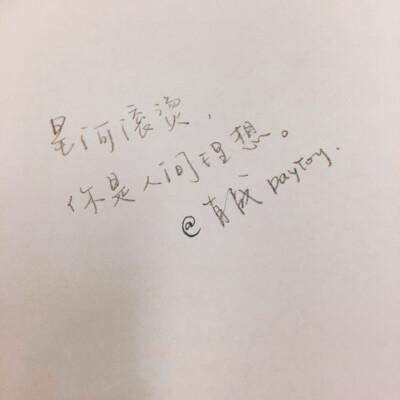 星河滚烫，
你是人间理想。
@有成 Daytoy.